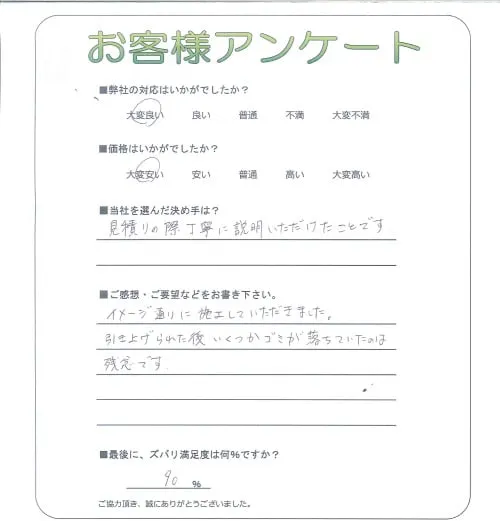 お客様アンケート
■弊社の対応はいかがでしたか？
大変良い 良い 普通 不満 大変不満
■価格はいかがでしたか？
大変安い 安い 普通 高い 大変高い
■当社を選んだ決め手は？
見積りの際丁寧に説明いただけたことです
■ご感想・ご要望などをお書き下さい。
イメージ通りに施工していただきました。
引き上げられた後いくつかゴミが落ちていたのは
残念です.
■最後に、ズバリ満足度は何％ですか？
90 ％
ご協力頂き、誠にありがとうございました。